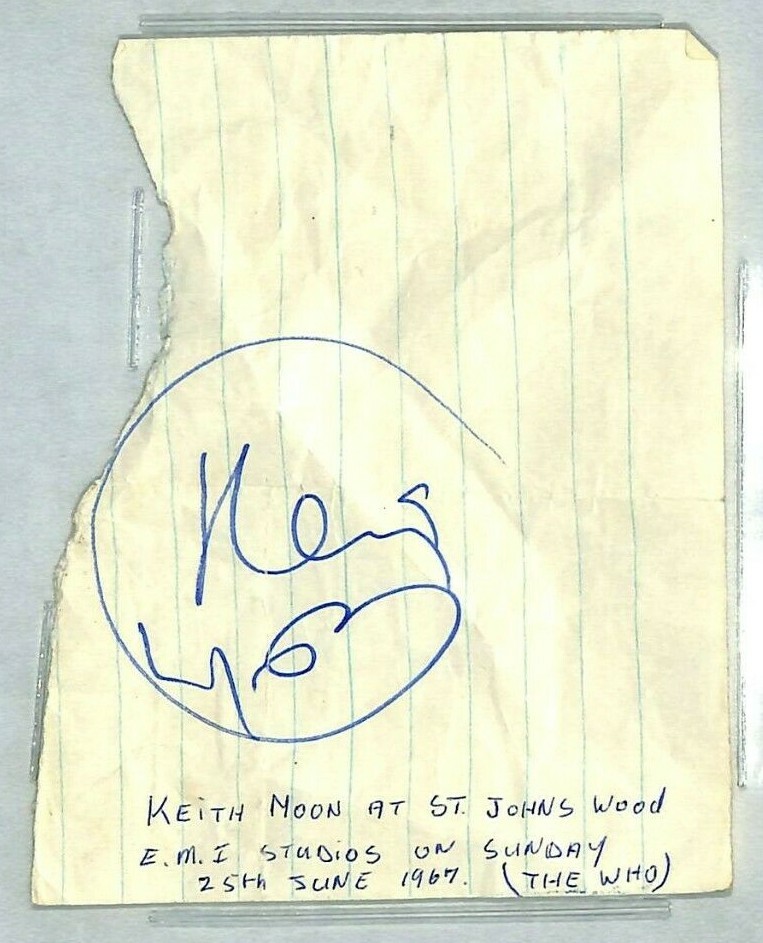 Keith
Moon
KEITH MOON AT ST. JOHNS WOOD
E.M.I STUDIOS ON SUNDAY
25th JUNE 1967. (THE WHO)